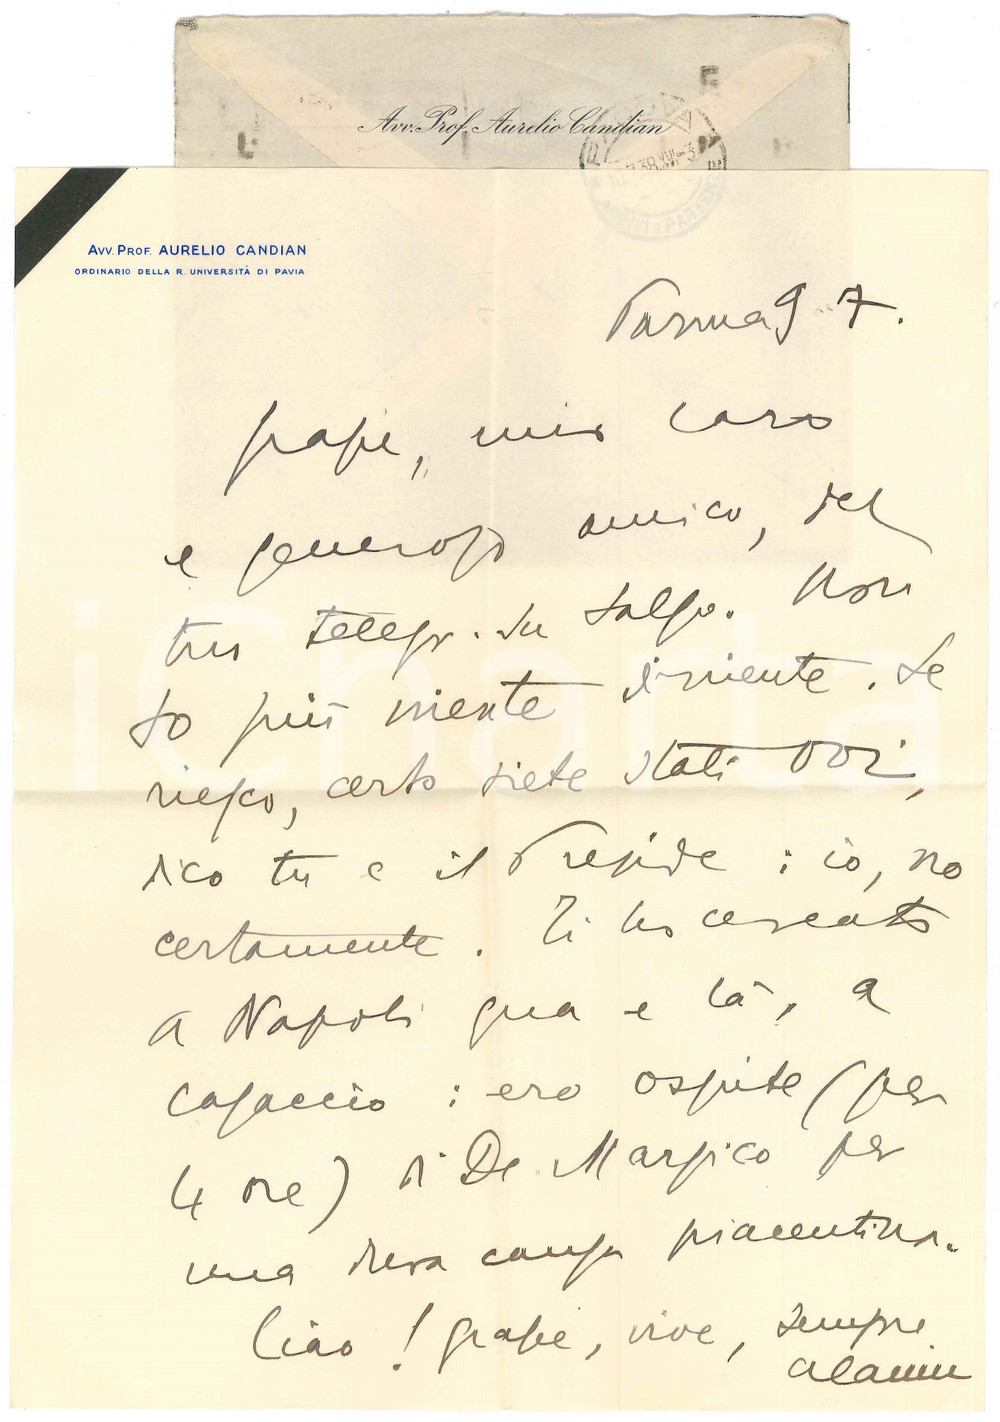 Avv. Prof. Aurelio Candian
AVV. PROF. AURELIO CANDIAN
ORDINARIO DELLA R. UNIVERSITÀ DI PAVIA
Parma 9 7.
Grazie, mio caro
e generoso amico, del
tuo telegr. su Salso. Non
so più niente di niente. Se
riesco, certo siete stati voi,
dico tu e il Preside; io, no
certamente. Ti ho cercato
a Napoli qua e là, a
casaccio: ero ospite (per
4 ore) di De Marsico per
una causa piacentina.
Ciao! Grazie, vive, sempre
iCharta